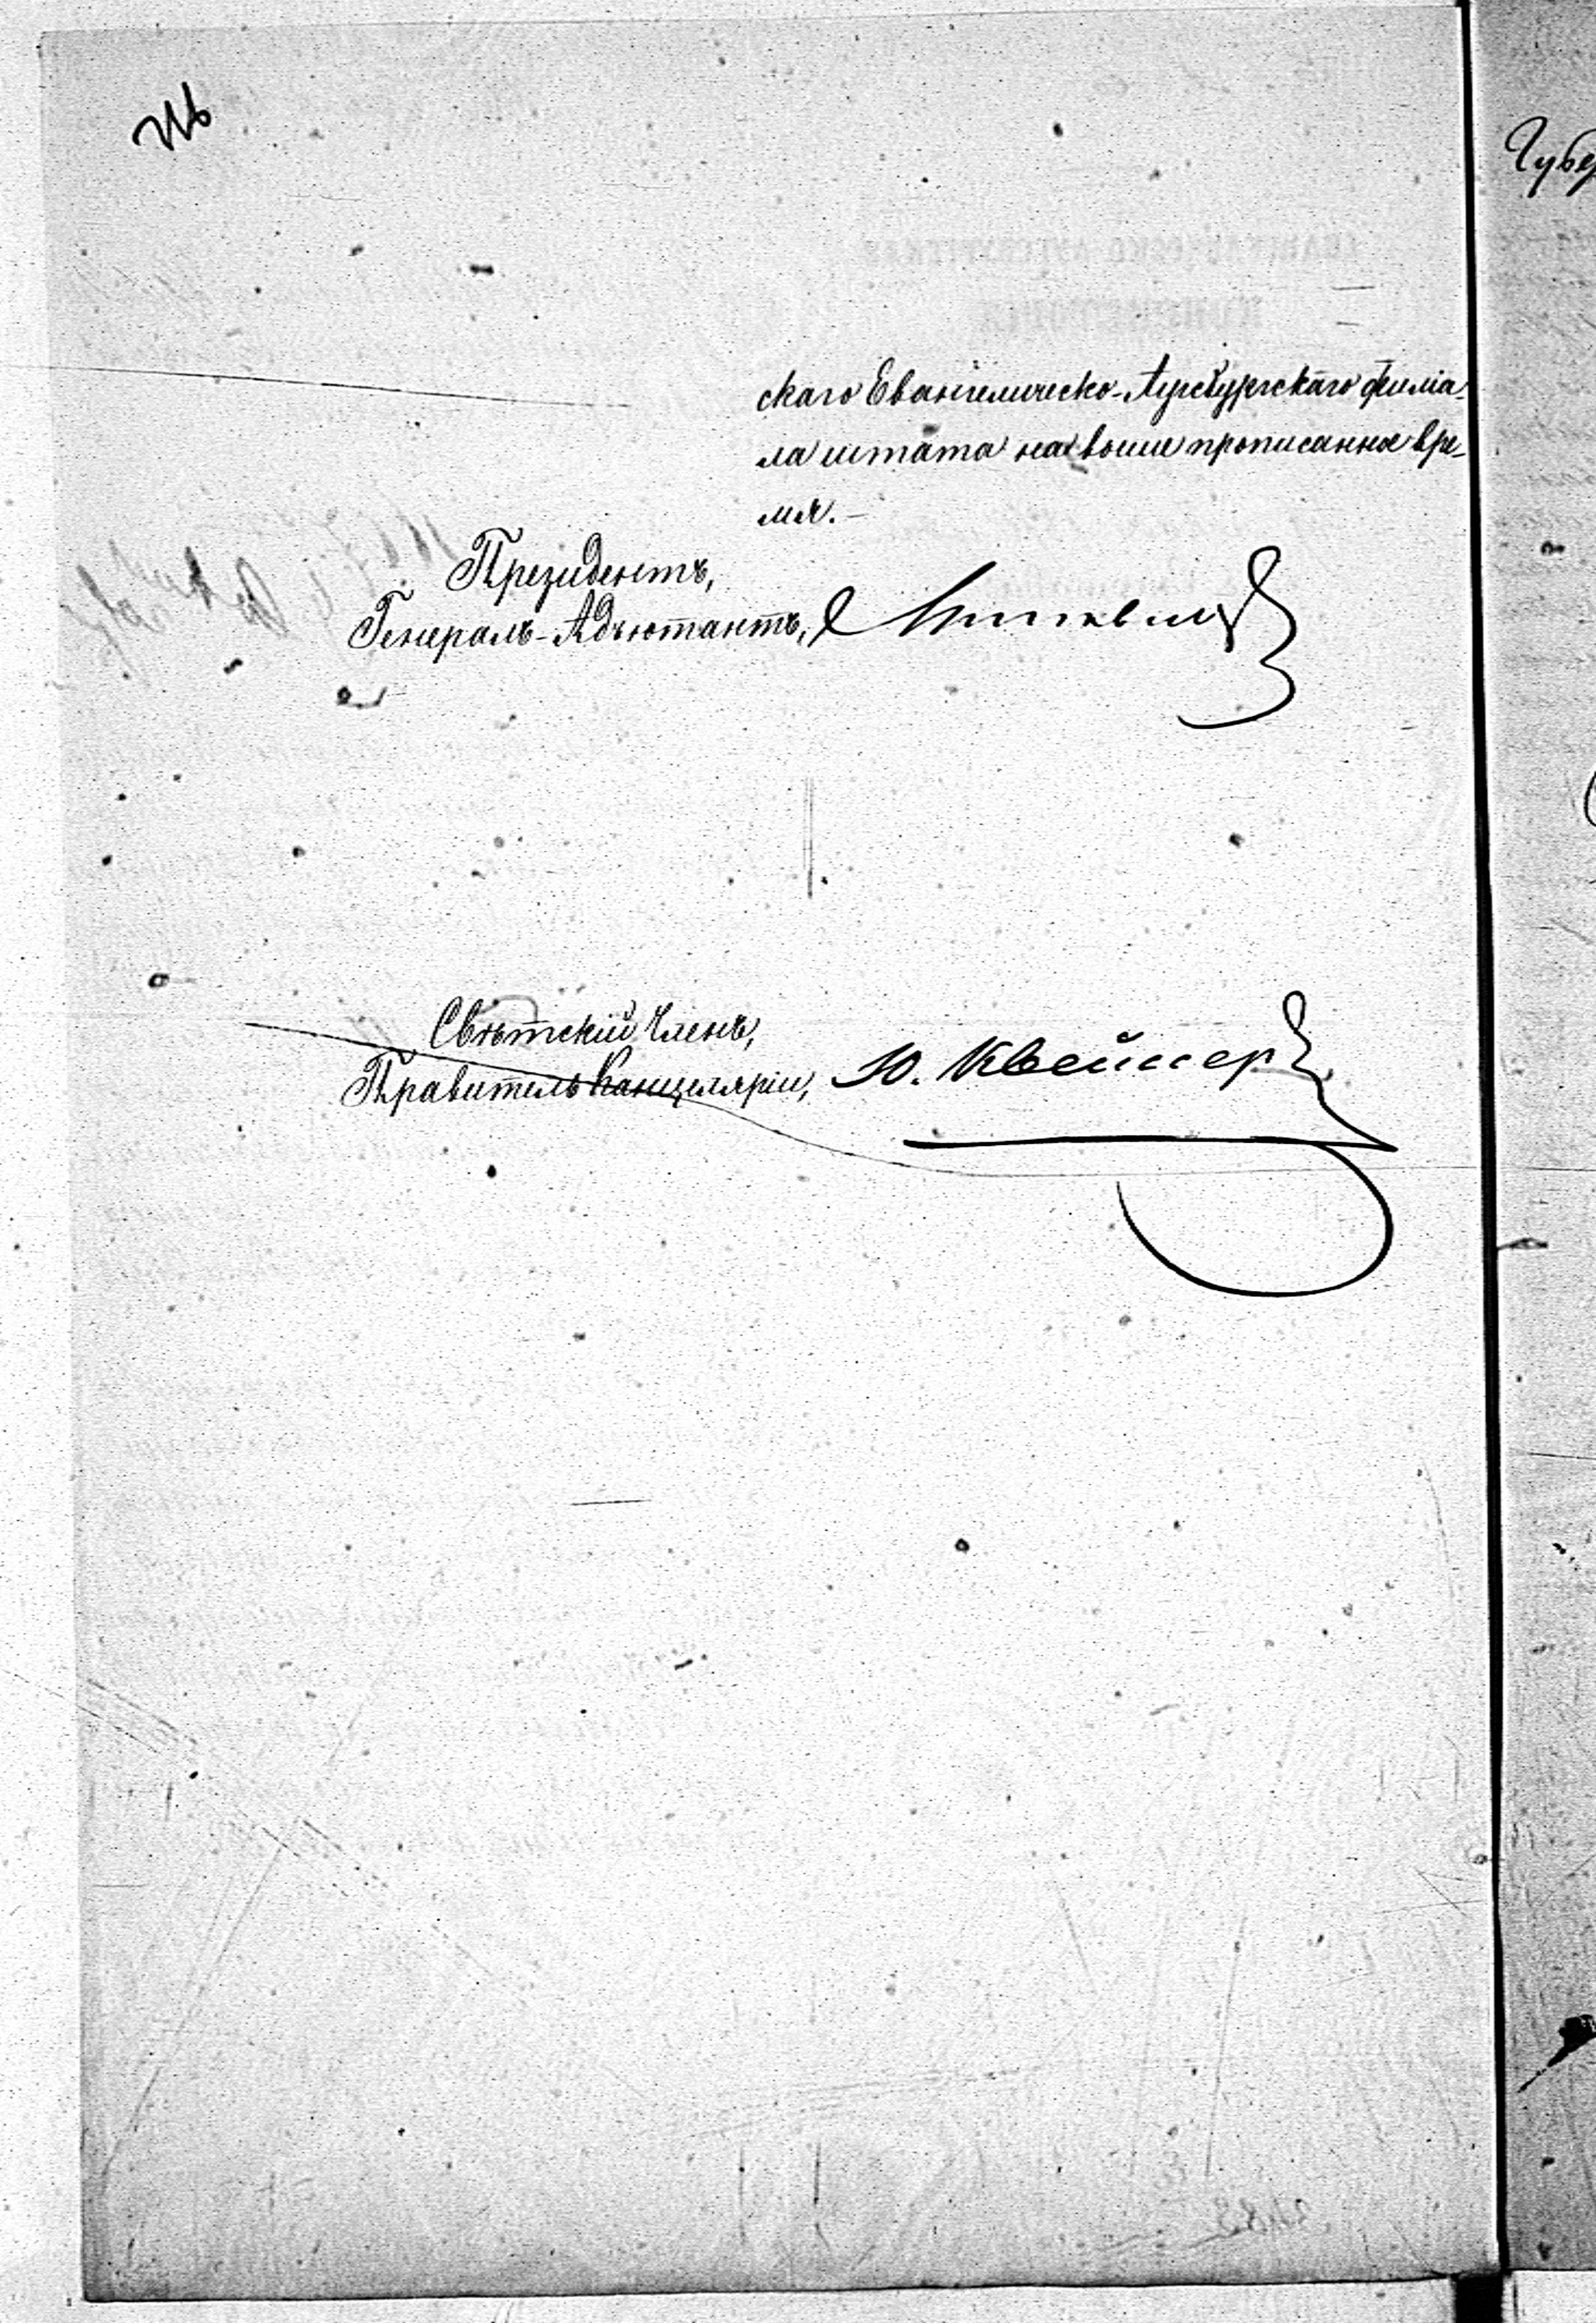 скаго Евангелическо-Аугсбургскаго филіа-
ла штата на выше прописанное вре-
мя.-
Президентъ,
Генералъ-Адъютантъ,
Свѣтскій Членъ,
Правитель Канцеляріи, Ю. Квейссер
Губер